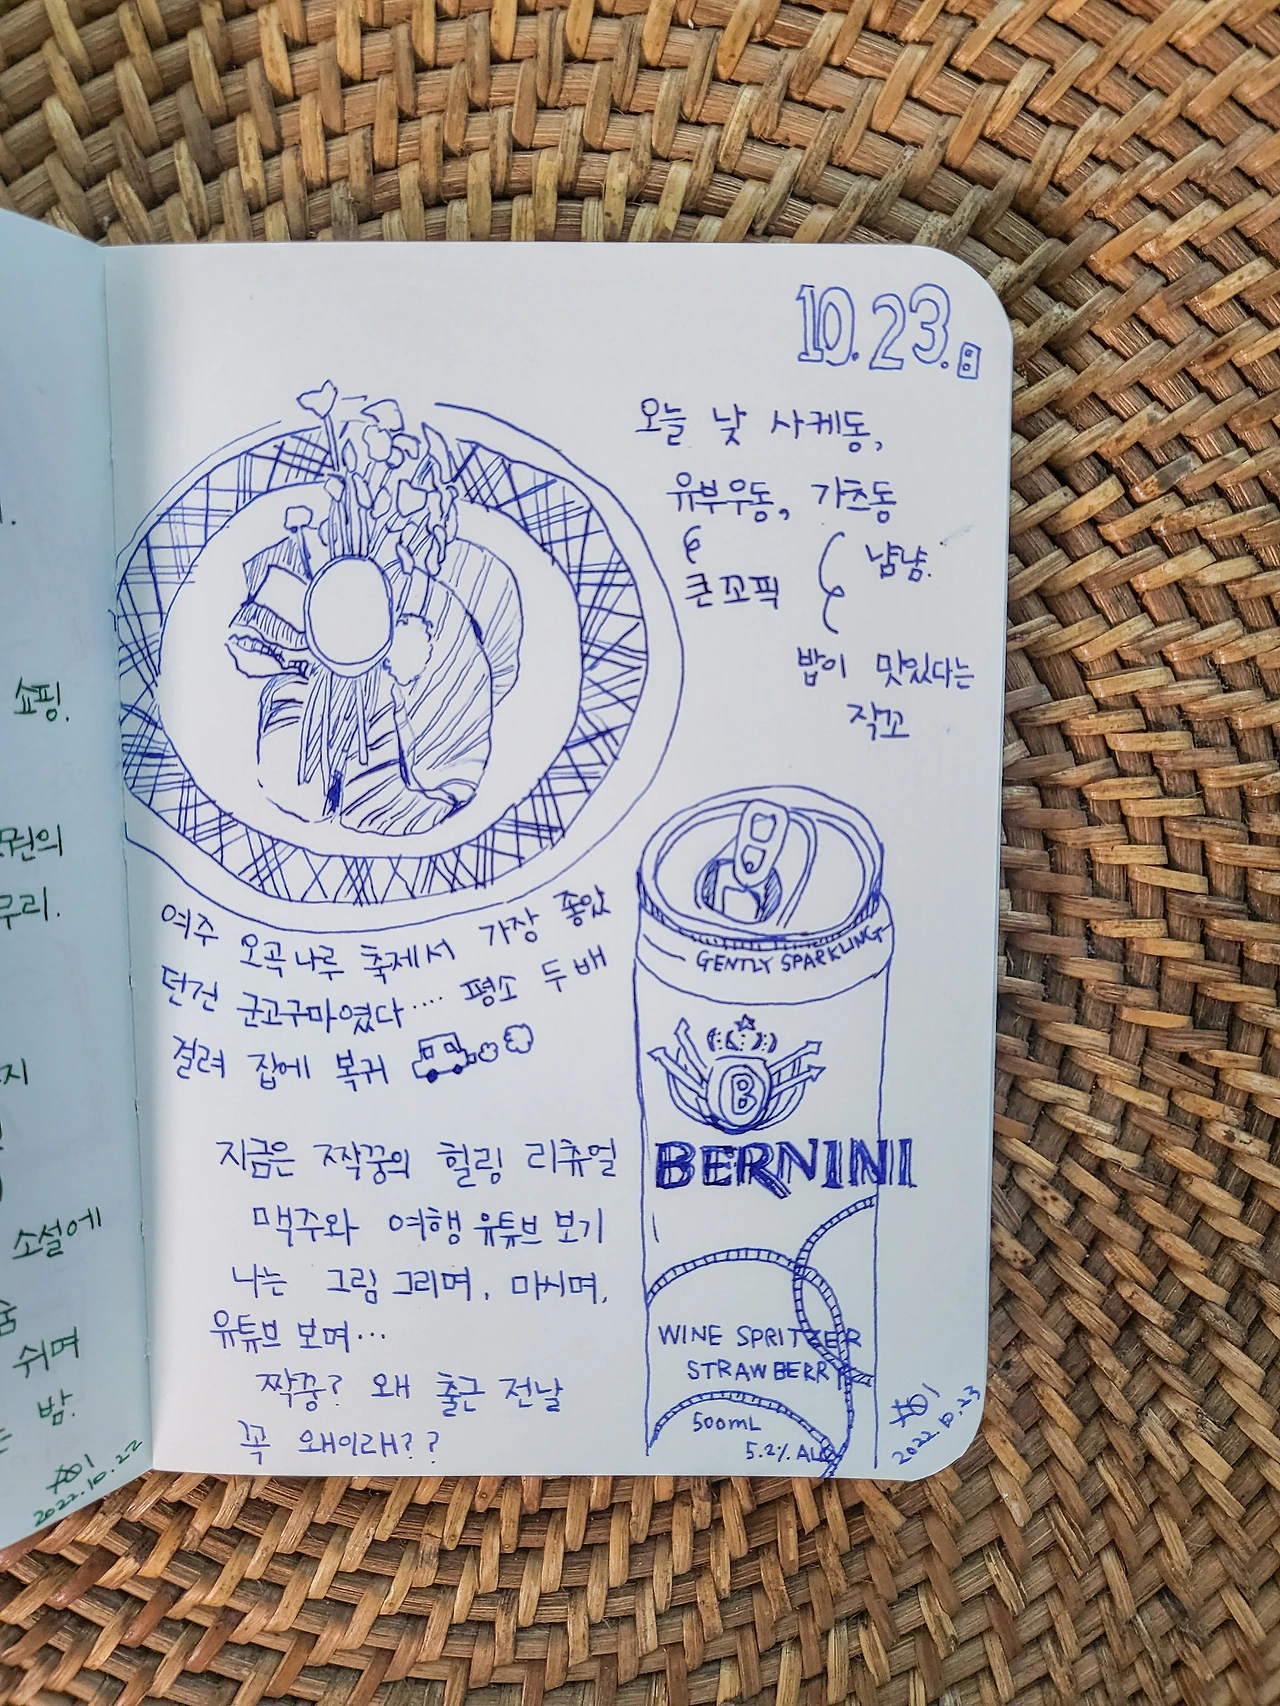 쇼핑.
권의
무리.
지
소설에
쉬며
밤.
2022.10.22
10.23.日
오늘 낮 사케동,
유부우동, 가츠동
큰꼬픽
냠냠.
밥이 맛있다는
작꼬
여주 오곡나루 축제서 가장 좋았
던건 군고구마였다.... 평소 두배
걸려 집에 복귀
지금은 짝꿍의 힐링 리츄얼
맥주와 여행 유튜브 보기
나는 그림 그리며, 마시며,
유튜브 보며...
짝꿍? 왜 출근 전날
꼭 왜이래??
GENTLY SPARKLING
B
BERNINI
WINE SPRITZER
STRAWBERRY
500mL
5.2% ALC
2022.10.23